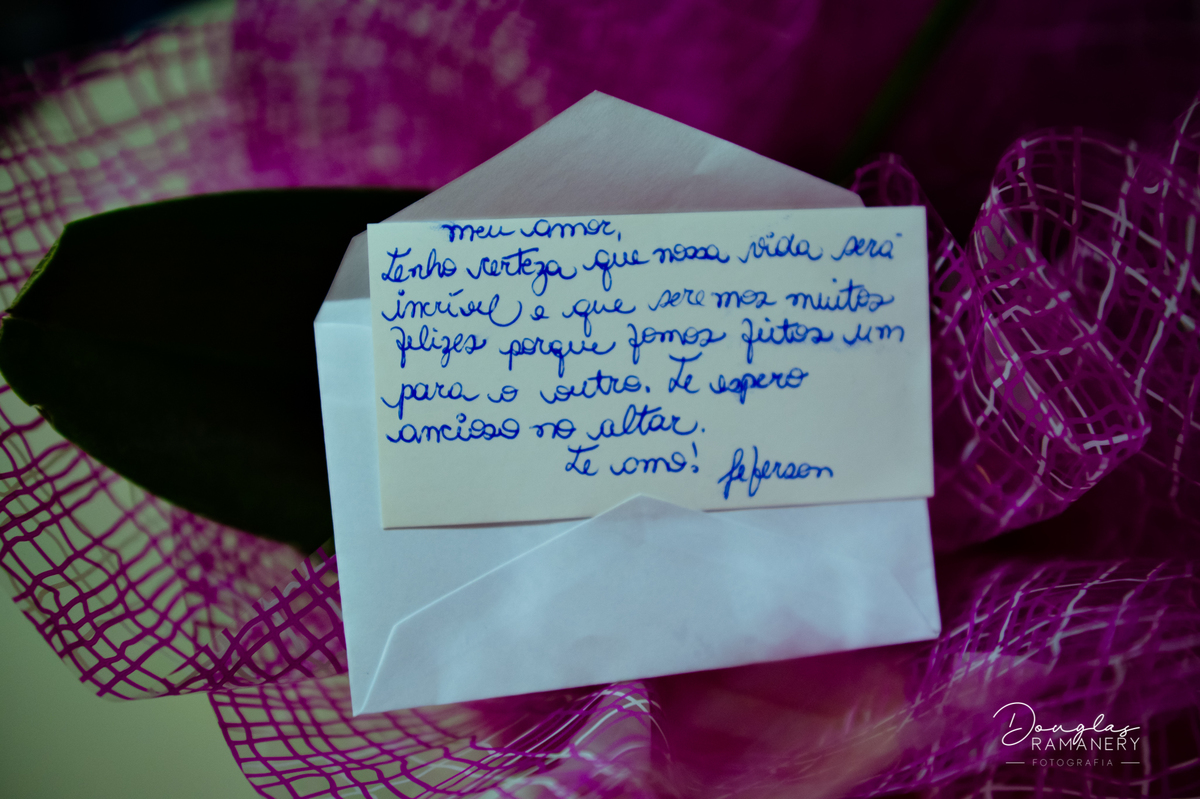 meu amor,
Tenho certeza que nossa vida será
incrível e que seremos muitos
felizes porque fomos feitos um
para o outro. Te espero
ancioso no altar.
Te amo! Jeferson
Douglas
RAMANERY
FOTOGRAFIA